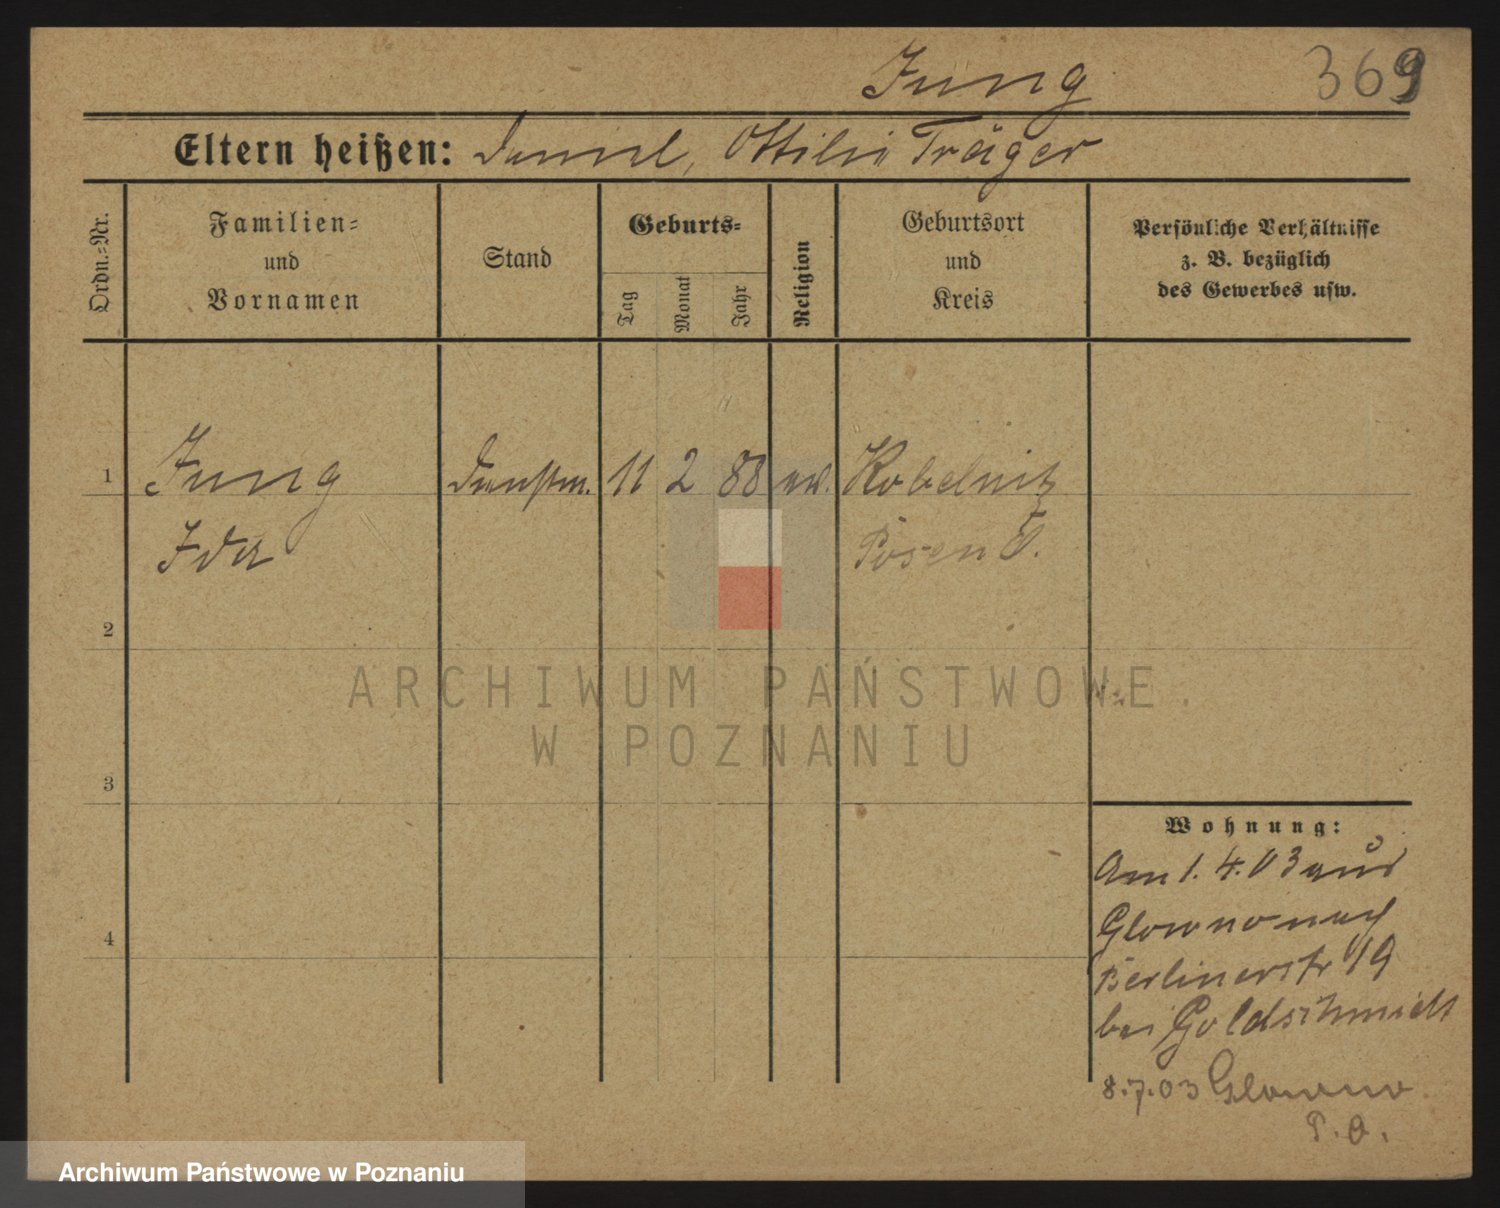 Jung
369
Eltern heißen: Daniel, Ottilie Träger
Ordn.-Nr.
Familien-
und
Vornamen
Stand
Geburts-
Tag
Monat
Jahr
Religion
Geburtsort
und
Kreis
Persönliche Verhältnisse
z. B. bezüglich
des Gewerbes usw.
1 Jung Dienstm. 11 2 88 ev. Kobelnitz
Ida Posen O.
2
ARCHIWUM PAŃSTWOWE
W POZNANIU
3
Wohnung:
Am 1.4.03 aus
Glowno nach
4
Berlinerstr 19
bei Goldschmidt
8.7.03 Glowno
P. O.
Archiwum Państwowe w Poznaniu